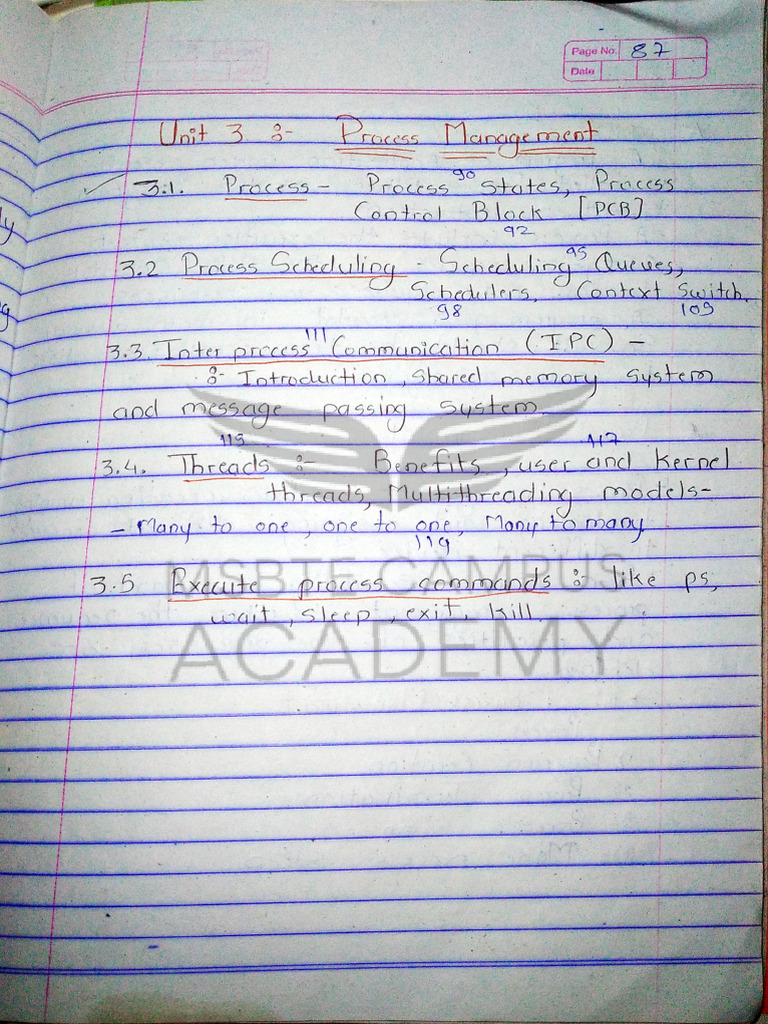 Page No. 87
Date
Unit 3 :- Process Management
3.1. Process - Process 90 States, Process
Control Block [PCB]
92
3.2 Process Scheduling - Scheduling 95 Queues,
Schedulers, Context Switch.
98 109
3.3. Inter process 111 Communication (IPC) -
:- Introduction, shared memory system
and message passing system
115 117
3.4. Threads :- Benefits, user and kernel
threads, Multithreading models-
- Many to one, one to one, Many to many
119
MSBTE CAMPUS
3.5 Execute process commands :- like ps,
wait, sleep, exit, kill.
ACADEMY